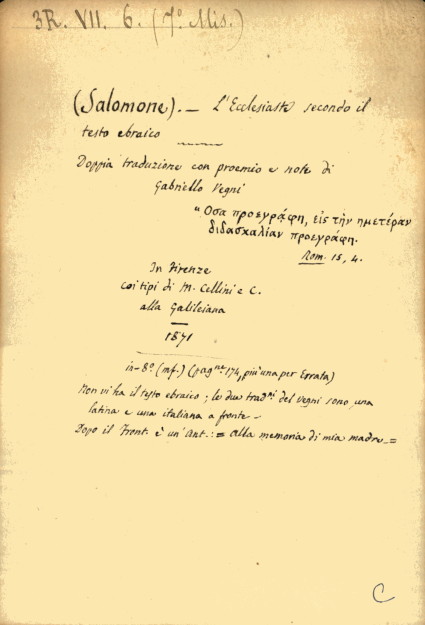 3R. VII. 6. (7º Mis.)
(Salomone). — L'Ecclesiaste secondo il
testo ebraico
Doppia traduzione con proemio e note di
Gabriello Vegni
"Οσα προεγράφη, εἰς τὴν ημετέραν
διδασκαλίαν προεγράφη.
Rom. 15, 4.
In Firenze
coi tipi di M. Cellini e C.
alla Galileiana
1871
in-8º (mf.) (pagne 174, più una per Errata)
Non vi ha il testo ebraico; le due tradni del Vegni sono, una
latina e una italiana a fronte -
Dopo il Front. è un' Ant.: = Alla memoria di mia madre =
C